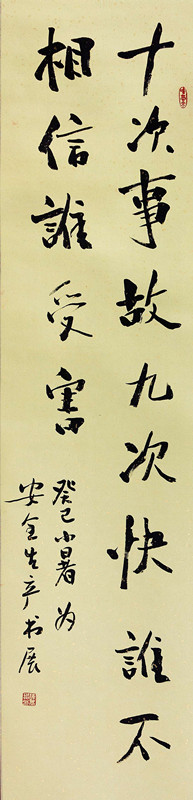 十次事故九次快誰不
相信誰受害
癸巳小暑為
安全生产书展